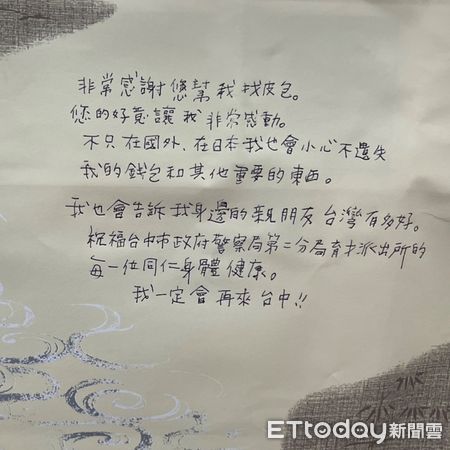 非常感謝您幫我找皮包。
您的好意讓我非常感動。
不只在國外、在日本我也會小心不遺失
我的錢包和其他重要的東西。
我也會告訴我身邊的親朋友台灣有多好。
祝福台中市政府警察局第二分局育才派出所的
每一位同仁身體健康。
我一定會再來台中!!
ETtoday新聞雲